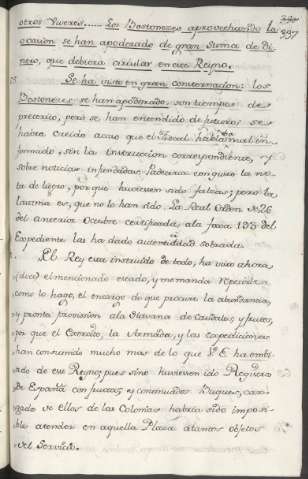 otros Viveres..... Los Bostoneses aprovechando la
ocasion se han apoderado de gran Suma de Di-
nero, que debiera circular en este Reyno.
Se ha visto en gran consternacion: los
Bostoneses se han apoderado: son tiempos de
preterito, pero se han entendido de futuros se
habra creido acaso que el Fiscal hablaba mal in-
formado, sin la instruccion correspondiente, y
sobre noticias infundadas. Padeceria con gusto la no-
ta de ligero, por que huviesen sido falsas; pero la
lastima es, que no lo han sido. La Real Orden de 26
del anterior Octubre certificada a la foxa 133 del
Expediente las ha dado autenticidad sobrada
El Rey esta instruido de todo, ha visto ahora
(dice) el mencionado estado, y me manda repetir a
como lo hago, el encargo de que procure la abundancia,
y pronta provision a la Havana de Caudales, y frutos,
por que el Exercito, la Armada, y las expediciones
han consumido mucho mas de lo que S. E. ha embi-
ado de ese Reyno; pues sino huviesen ido Registros
de España con frutos; y continuados Buques, car-
gados de ellos de las Colonias habria sido imposi-
ble atender en aquella Plaza a tantos objetos
del Servicio.
397